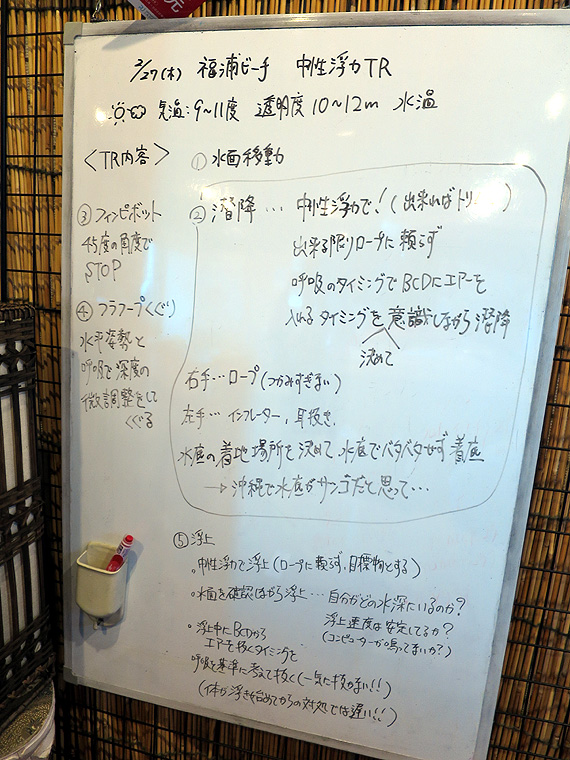 3/27(木) 福浦ビーチ 中性浮力TR
気温:9～11度 透明度10～12m 水温
<TR内容>
① 水面移動
② 潜降… 中性浮力で!(出来ればトリ
出来る限りロープに頼らず
呼吸のタイミングでBCDにエアーを
入れるタイミングを意識しながら潜降
決めて
右手…ロープ(つかみすぎない)
左手…インフレーター、耳抜き、
水底の着地場所を決めて、水底でバタバタせず着底
→沖縄で水底がサンゴだと思って…
③ フィンピボット
45度の角度で
STOP
④ フラフープくぐり
水平姿勢と
呼吸で深度の
微調整をして
くぐる
⑤ 浮上
・中性浮力で浮上(ロープに頼らず、目標物とする)
・水面を確認しながら浮上…自分がどの水深にいるのか?
浮上速度は安定してるか?
(コンピューターが鳴ってまいか?)
・浮上中にBCDから
エアーを抜くタイミングを
呼吸を基準に考えて抜く(一気に抜かない!!)
(体が浮き始めてからの対処では遅い!!)